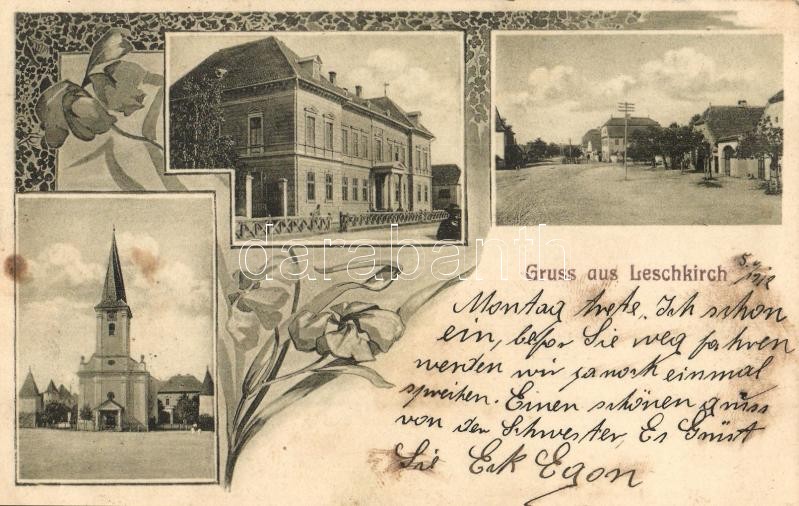 Gruss aus Leschkirch
5. V. 1912
Montag trete, Ich schon
ein, befor Sie weg fahren
werden wir ja noch einmal
spreihen. Einen schönen gruss
von der Schwester, Es Grüst
Sie Erk Egon
darabanth